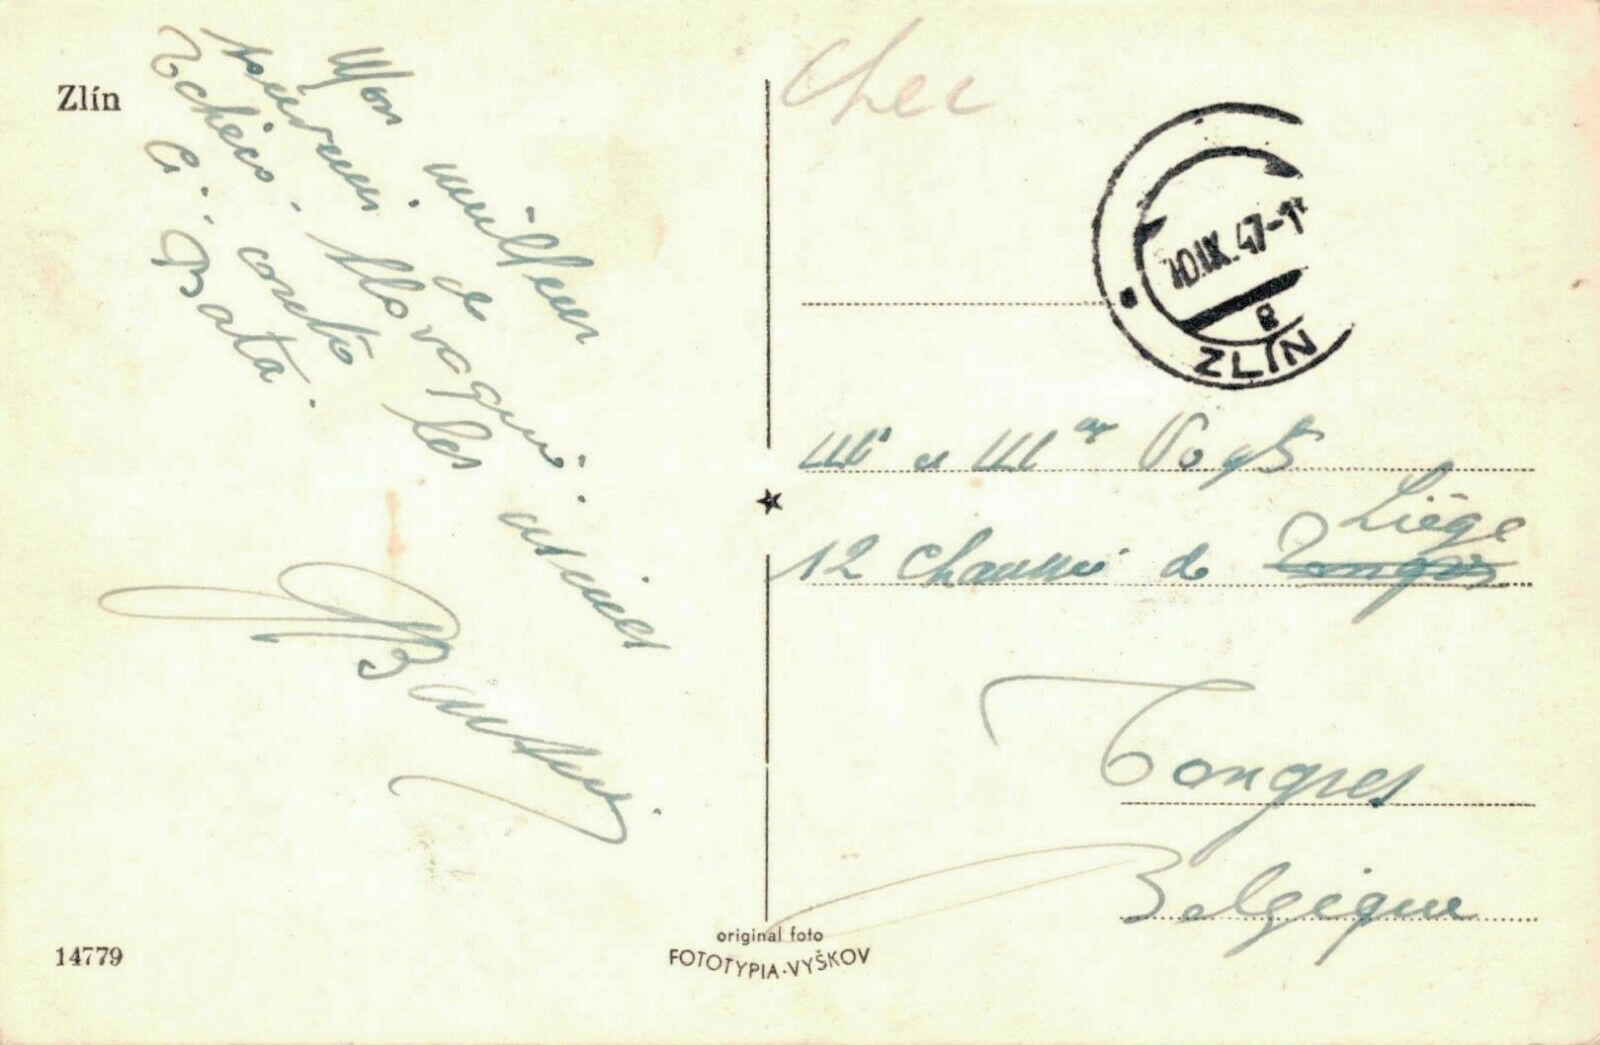 Zlín
Mon meilleur
souvenir de
Tchéco-Slovaquie.
Ci-contre les usines
Bata.
14779
original foto
FOTOTYPIA-VYŠKOV
Chec
10.IX.47-1
8
ZLÍN
Mr et Mme Vogt
Liège
12 Chaussée de Tongres
Tongres
Belgique